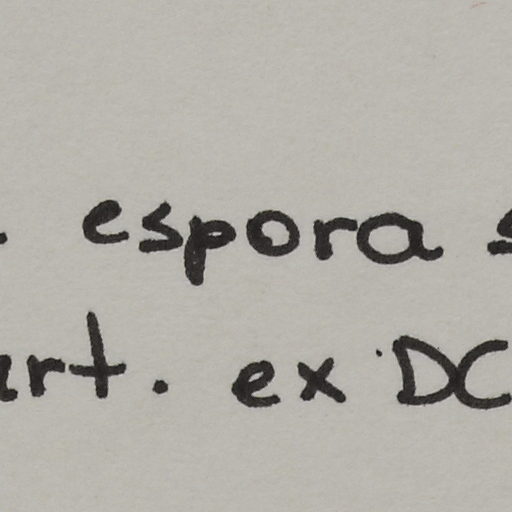 . espora s
art. ex DC